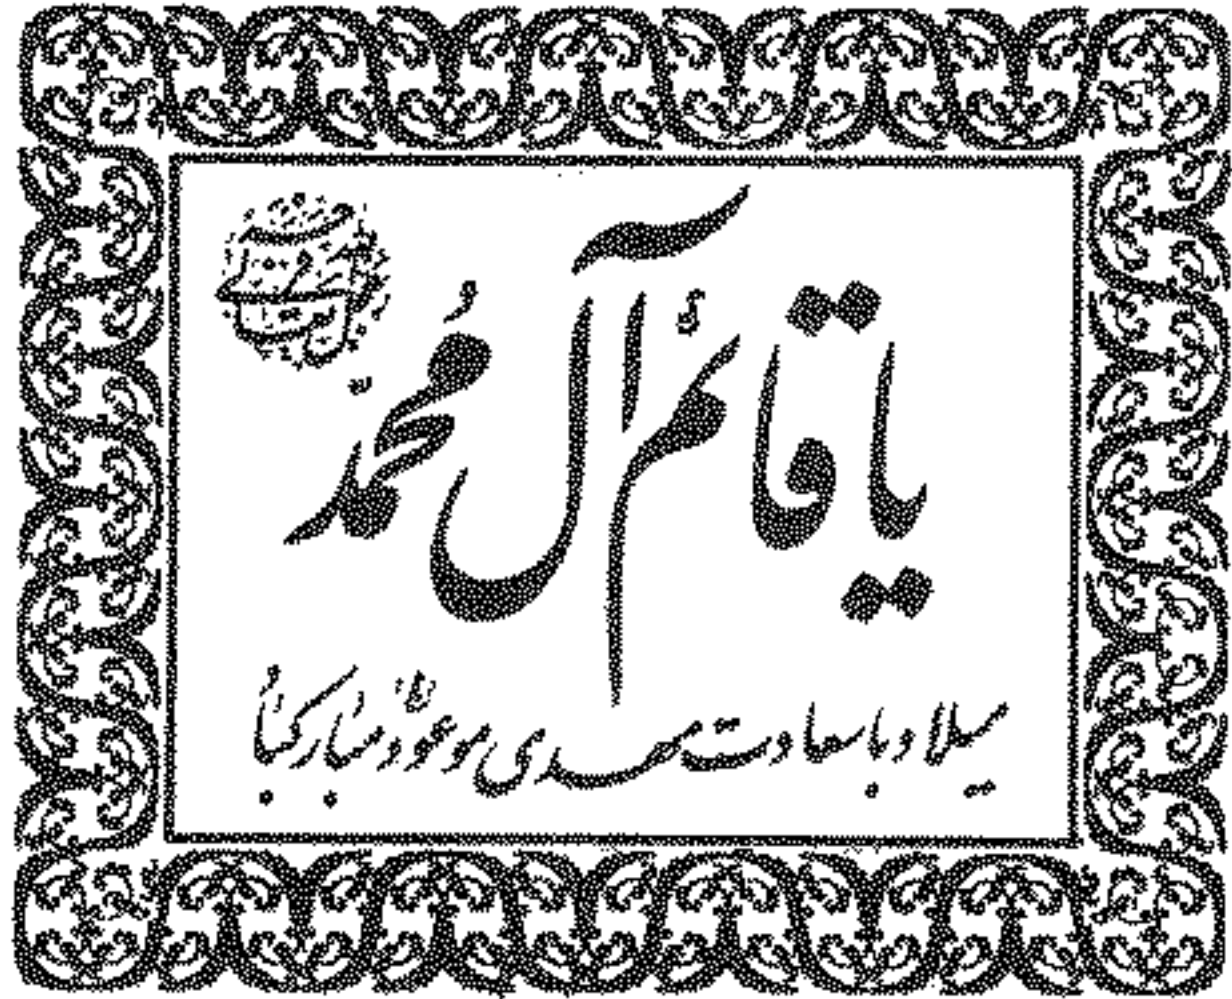 یا قائم آل مُحمّد
میلاد با سعادت مهدی موعود (عج) مبارکباد